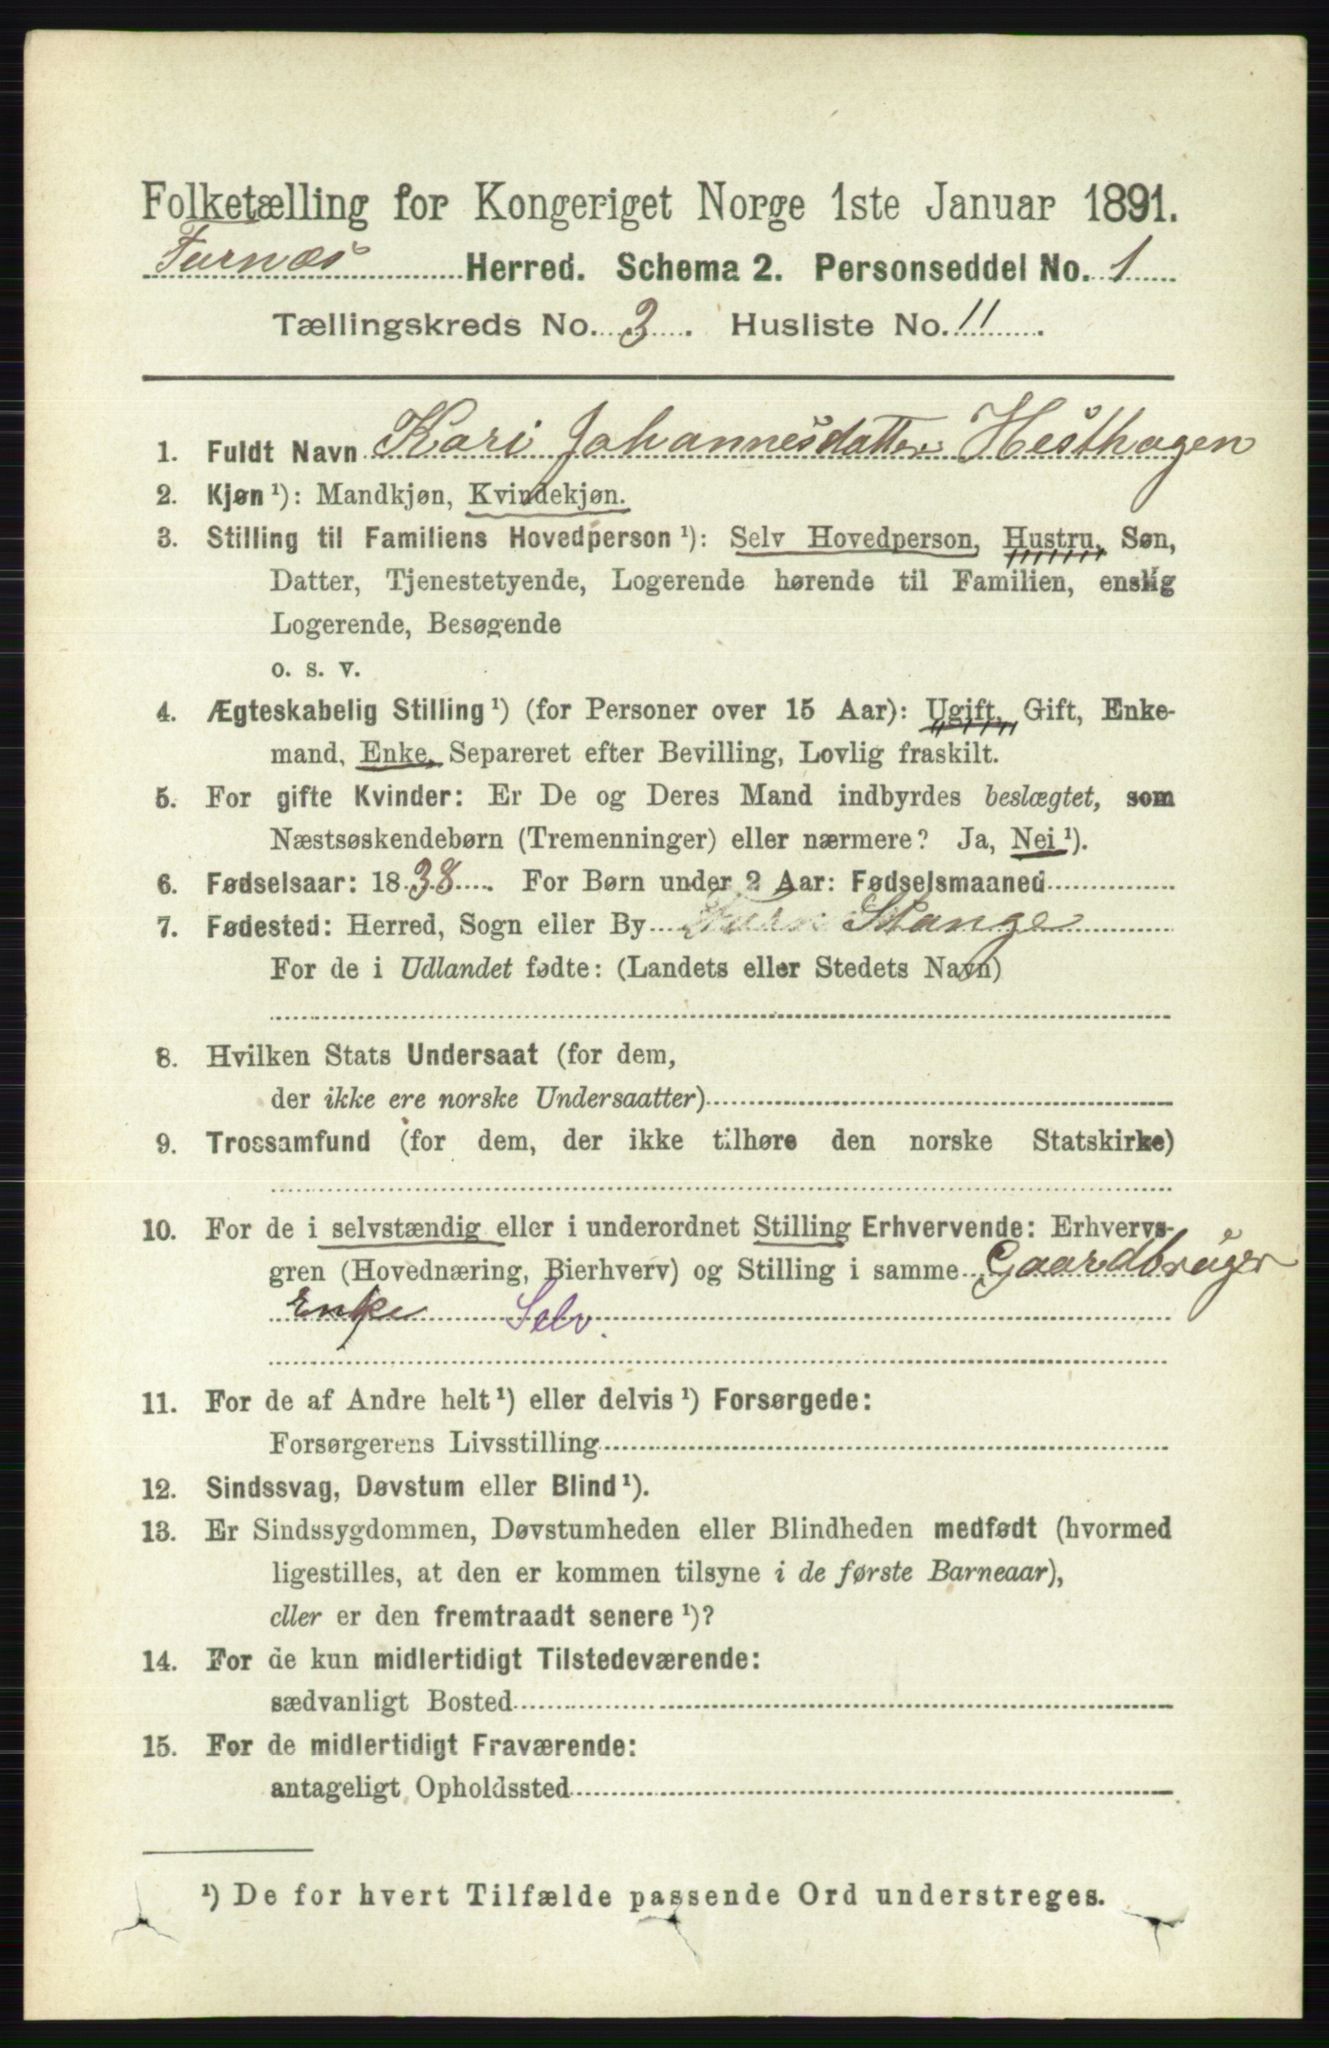 Folketælling for Kongeriget Norge 1ste Januar 1891.
Furnæs Herred. Schema 2. Personseddel No. 1
Tællingskreds No. 3. Husliste No. 11.
1. Fuldt Navn Kari Johannesdatter Hesthagen
2. Kjøn ¹): Mandkjøn, Kvindekjøn.
3. Stilling til Familiens Hovedperson ¹): Selv Hovedperson, Hustru, Søn,
Datter, Tjenestetyende, Logerende hørende til Familien, enslig
Logerende, Besøgende
o. s. v.
4. Ægteskabelig Stilling ¹) (for Personer over 15 Aar): Ugift, Gift, Enke-
mand, Enke, Separeret efter Bevilling, Lovlig fraskilt.
5. For gifte Kvinder: Er De og Deres Mand indbyrdes beslægtet, som
Næstsøskendebørn (Tremenninger) eller nærmere? Ja, Nei ¹).
6. Fødselsaar: 1838. For Børn under 2 Aar: Fødselsmaaned
7. Fødested: Herred, Sogn eller By Furn Stange
For de i Udlandet fødte: (Landets eller Stedets Navn)
8. Hvilken Stats Undersaat (for dem,
der ikke ere norske Undersaatter)
9. Trossamfund (for dem, der ikke tilhøre den norske Statskirke)
10. For de i selvstændig eller i underordnet Stilling Erhvervende: Erhvervs-
gren (Hovednæring, Bierhverv) og Stilling i samme Gaardbruger
Enke Selv.
11. For de af Andre helt ¹) eller delvis ¹) Forsørgede:
Forsørgerens Livsstilling
12. Sindssvag, Døvstum eller Blind ¹).
13. Er Sindssygdommen, Døvstumheden eller Blindheden medfødt (hvormed
ligestilles, at den er kommen tilsyne i de første Barneaar),
eller er den fremtraadt senere ¹)?
14. For de kun midlertidigt Tilstedeværende:
sædvanligt Bosted
15. For de midlertidigt Fraværende:
antageligt Opholdssted
¹) De for hvert Tilfælde passende Ord understreges.